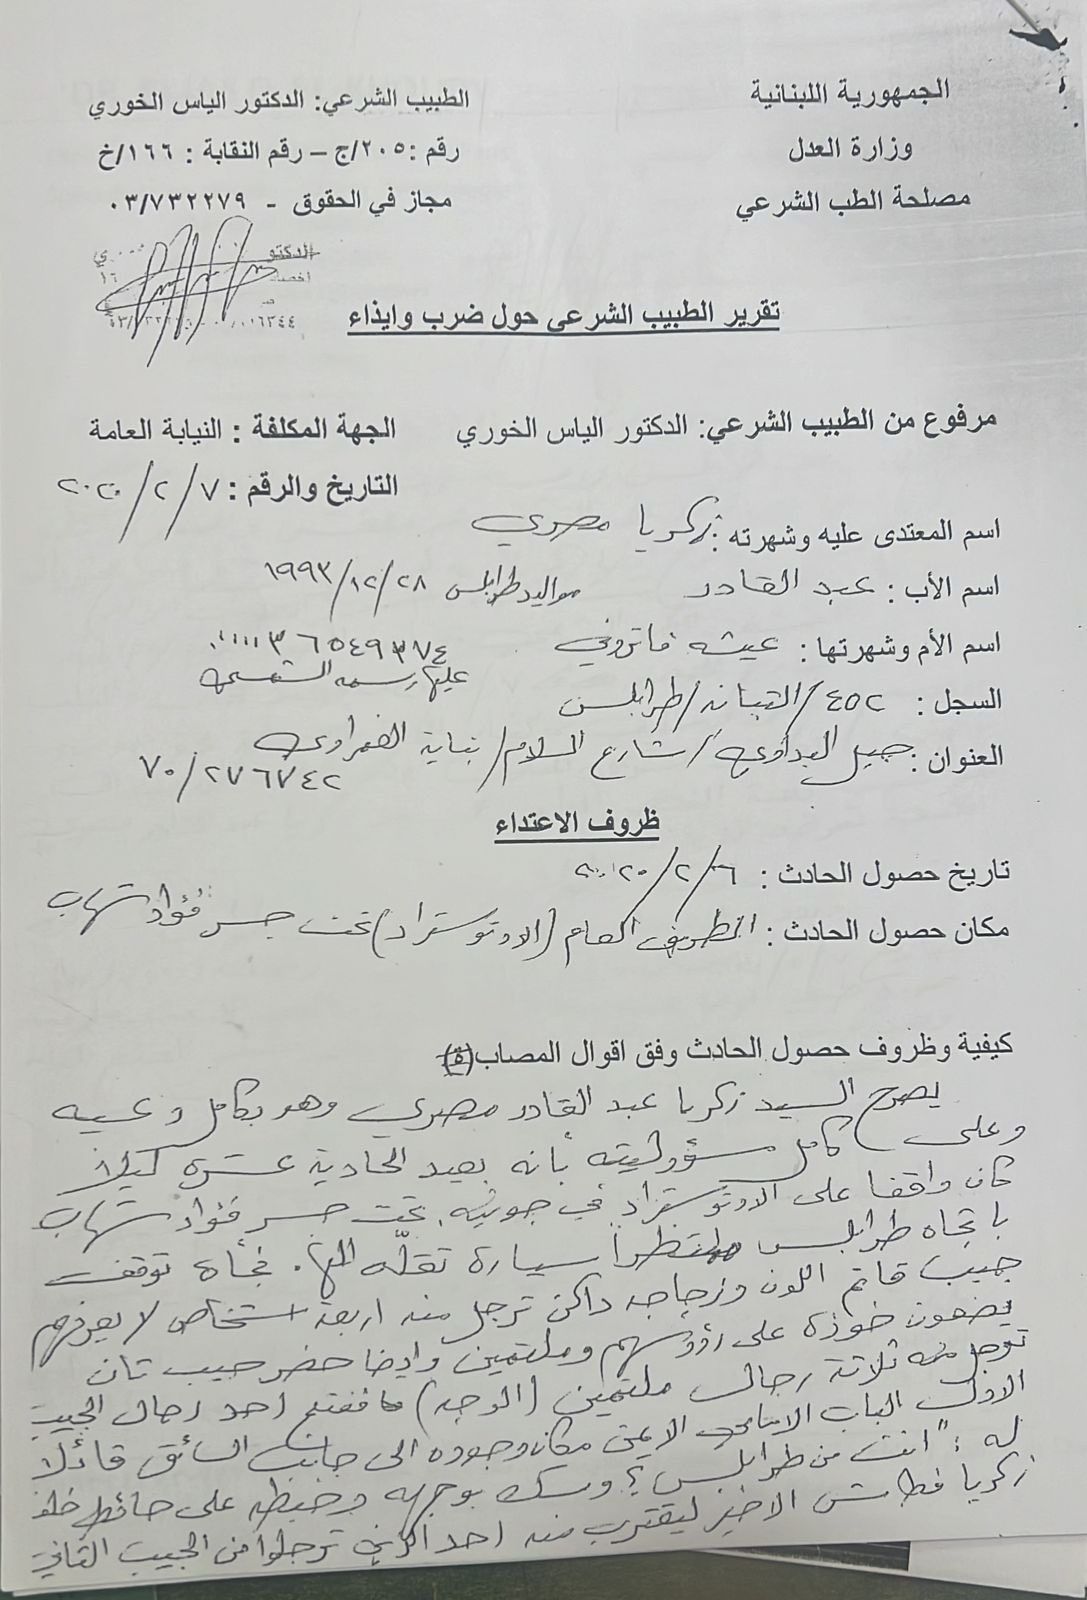 الجمهورية اللبنانية
وزارة العدل
مصلحة الطب الشرعي
الطبيب الشرعي: الدكتور الياس الخوري
رقم :٢٠٥/ج – رقم النقابة : ١٦٦/خ
مجاز في الحقوق - ٠٣/٧٣٢٢٧٩
الدكتو
تقرير الطبيب الشرعي حول ضرب وايذاء
مرفوع من الطبيب الشرعي: الدكتور الياس الخوري
الجهة المكلفة : النيابة العامة
التاريخ والرقم : ٧/٢/٢٠٢٠
اسم المعتدى عليه وشهرته : زكريا مصري
اسم الأب : عبد القادر مواليد طرابلس ٢٨/١٢/١٩٩٣
اسم الأم وشهرتها : عيشه
عليها رسمه الشمسي
السجل : ٤٥٢/التبانه/طرابلس
العنوان : جبل البداوي/شارع السلام/بناية
٧٠/٢٧٦٧٤٢
ظروف الاعتداء
تاريخ حصول الحادث : ٦/٢/٢٠٢٠
مكان حصول الحادث : الطريق العام (الاوتوستراد) تحت جسر فؤاد شهاب
كيفية وظروف حصول الحادث وفق اقوال المصاب(ة)
يصرح السيد زكريا عبد القادر مصري وهو بكامل وعيه
وعلى كامل مسؤوليته بأنه بعيد الحادية عشرة ليلا
كان واقفا على الاوتوستراد في جونيه، تحت جسر فؤاد شهاب
باتجاه طرابلس منتظرا سيارة تقلّه اليها. فجأة توقف
جيب قاتم اللون وزجاجه داكن ترجل منه اربعة اشخاص لا يعرفهم
يضعون خوذة على رؤوسهم وملثمين وايضا حضر جيب ثان
ترجل منه ثلاثة رجال ملثمين (الوجه) ففتح احد رجال الجيب
الاول الباب الامامي الايمن مكان وجوده الى جانب السائق قائلا
له: "انت من طرابلس؟ ومسك بوجهه وخبطه على حائط خلف
زكريا الاخير ليقترب منه احد الذين ترجلوا من الجيب الثاني